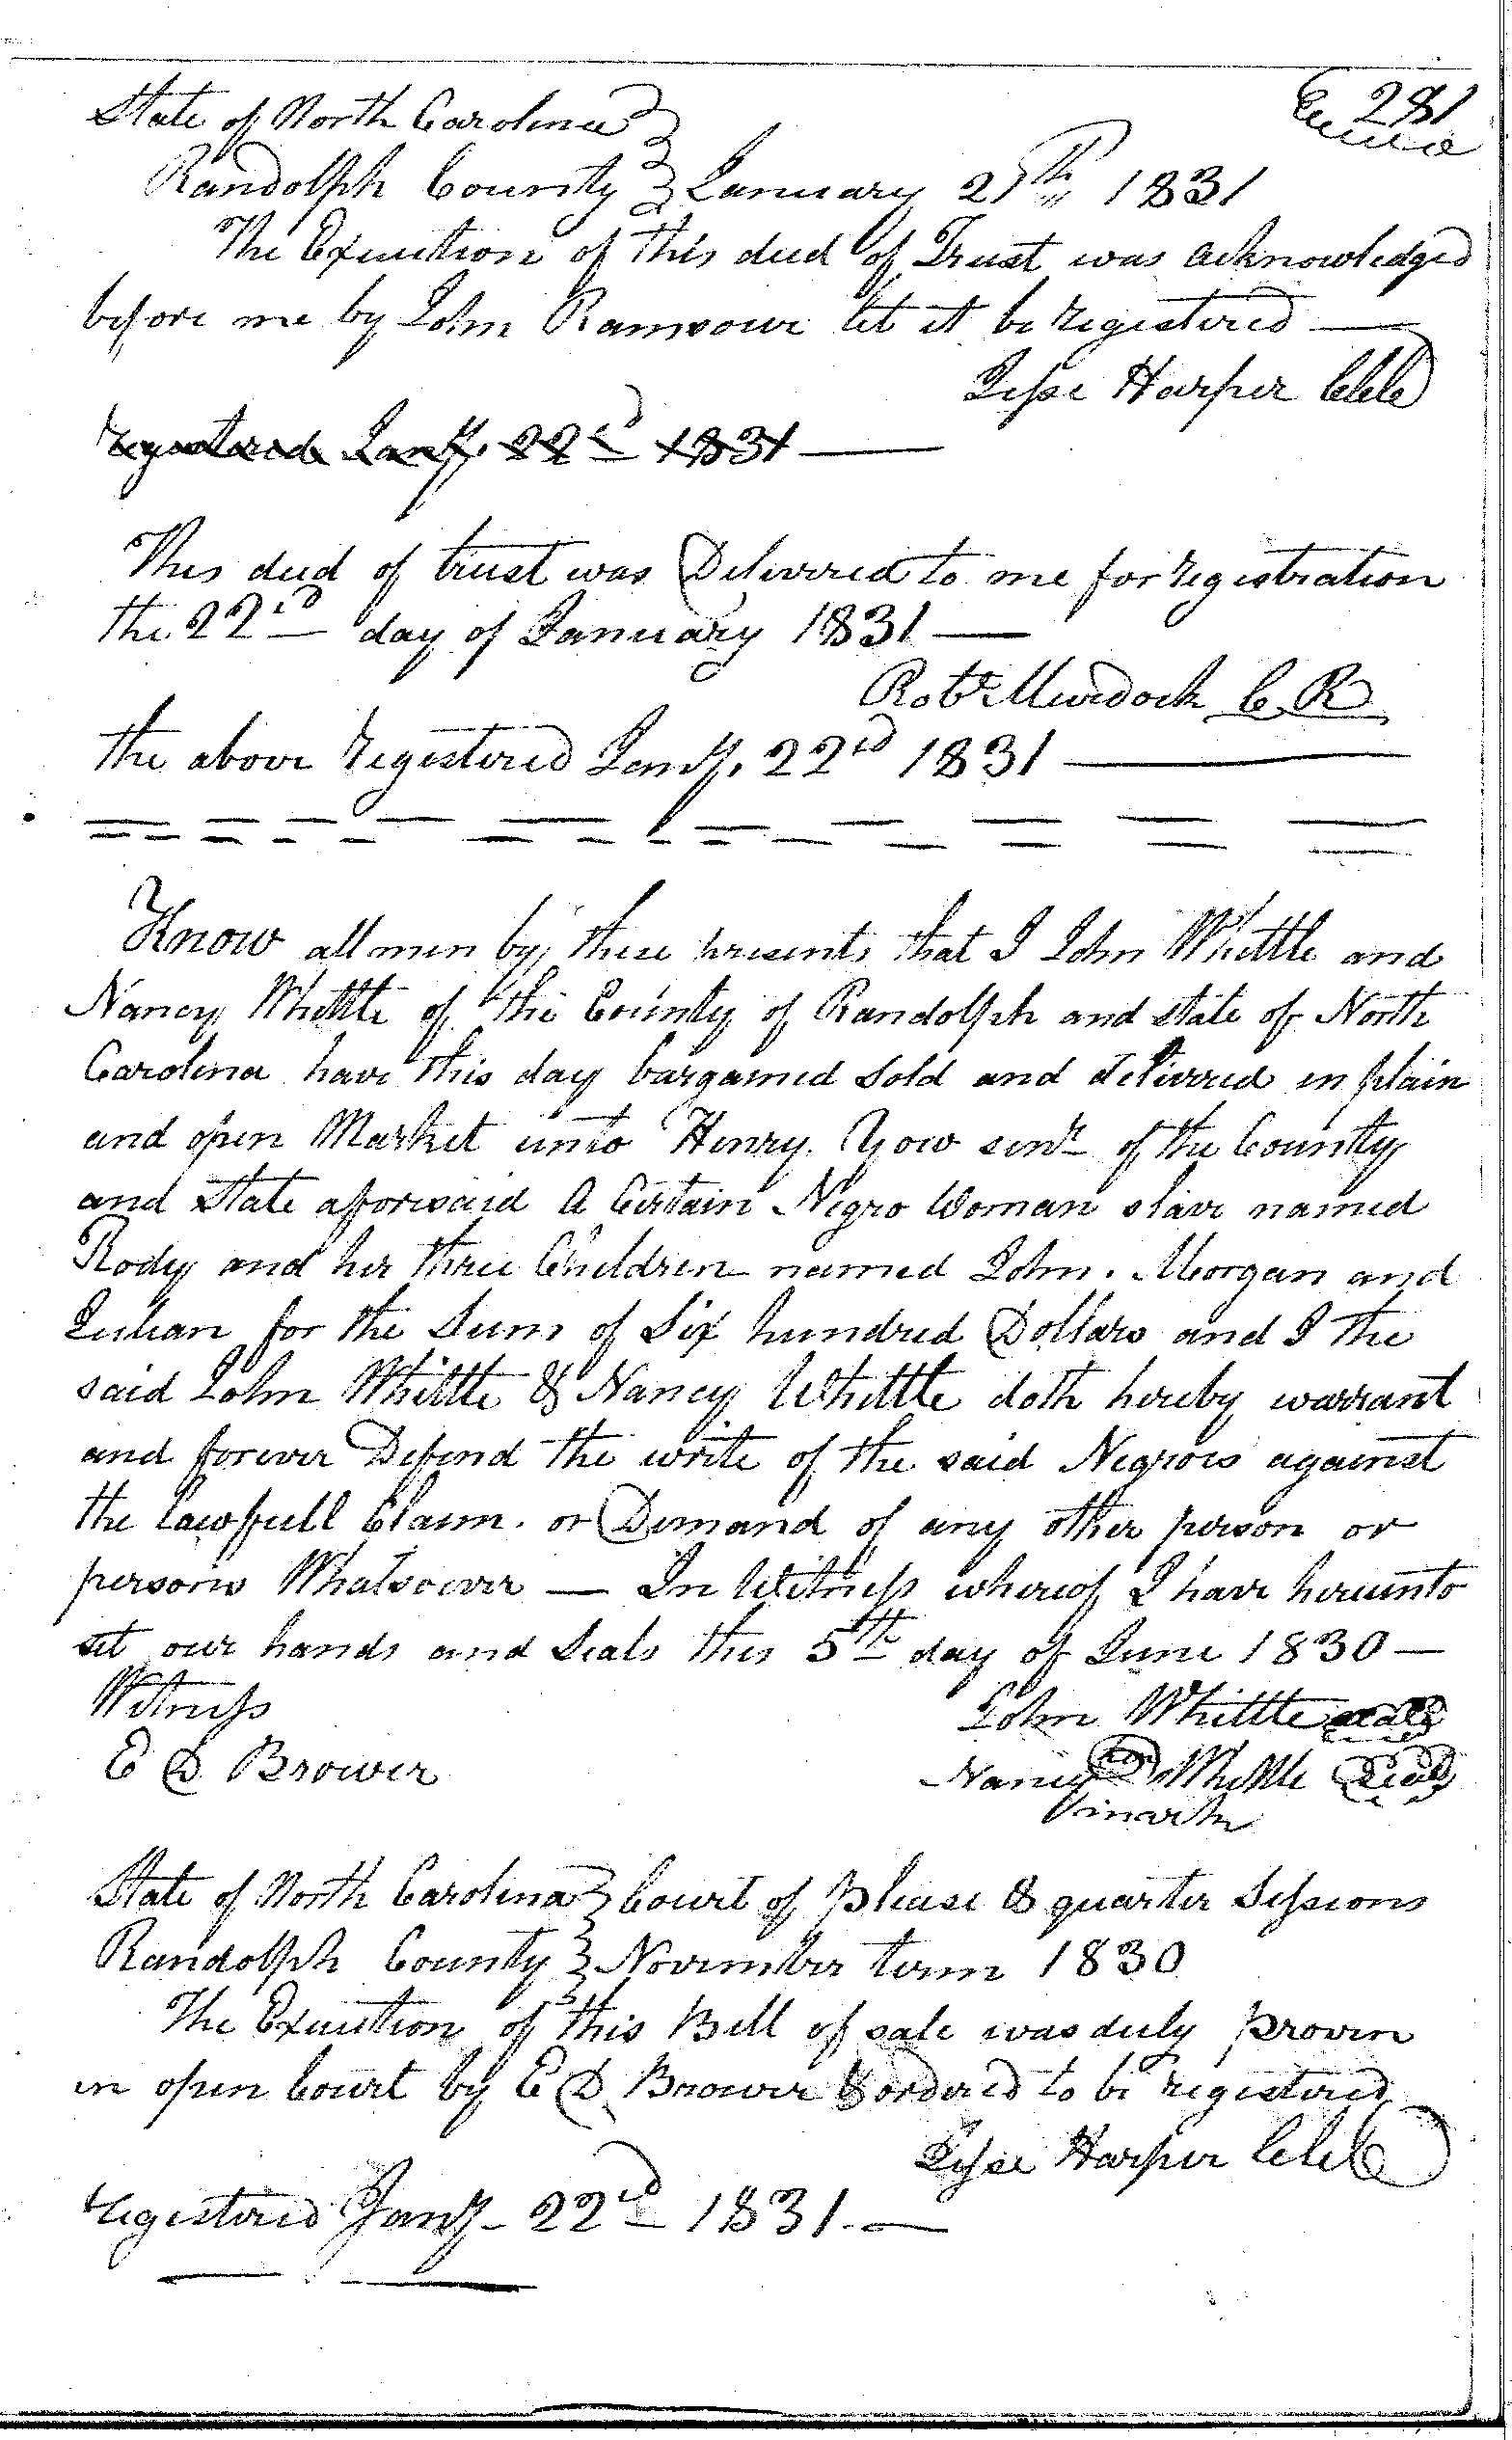 281
State of North Carolina
Randolph County January 21th 1831
The Execution of this deed of Trust was acknowledged
before me by John Ramsour let it be registered —
Jesse Harper Clk
registered Jany. 22d 1831 —
This deed of trust was Delivered to me for registration
the 22nd day of January 1831 —
Robt Murdock C. R
the above registered Jany. 22nd 1831 —
Know all men by these presents that I John Whittle and
Nancy Whittle of the County of Randolph and state of North
Carolina have this day bargained Sold and delivered in plain
and open Market unto Henry Yow senr of the County
and State aforesaid A Certain Negro Woman slave named
Rody and her three Children named John. Morgan and
Julian for the Sum of Six hundred Dollars and I the
said John Whittle & Nancy Whittle doth hereby warrant
and forever Defend the write of the said Negroes against
the Lawfull Claim. or Demand of any other person or
persons Whatsoever — In Witness whereof I have hereunto
set our hands and Seals this 5th day of June 1830 —
Witness John Whittle seal
E D Brower Nancy her Whittle Seal
mark
State of North Carolina Court of Please & quarter Sessions
Randolph County November term 1830
The Execution of this Bill of sale was duly proven
in open Court by E D Brower & ordered to be registered
Jesse Harper Clk
registered Jany - 22nd 1831. —